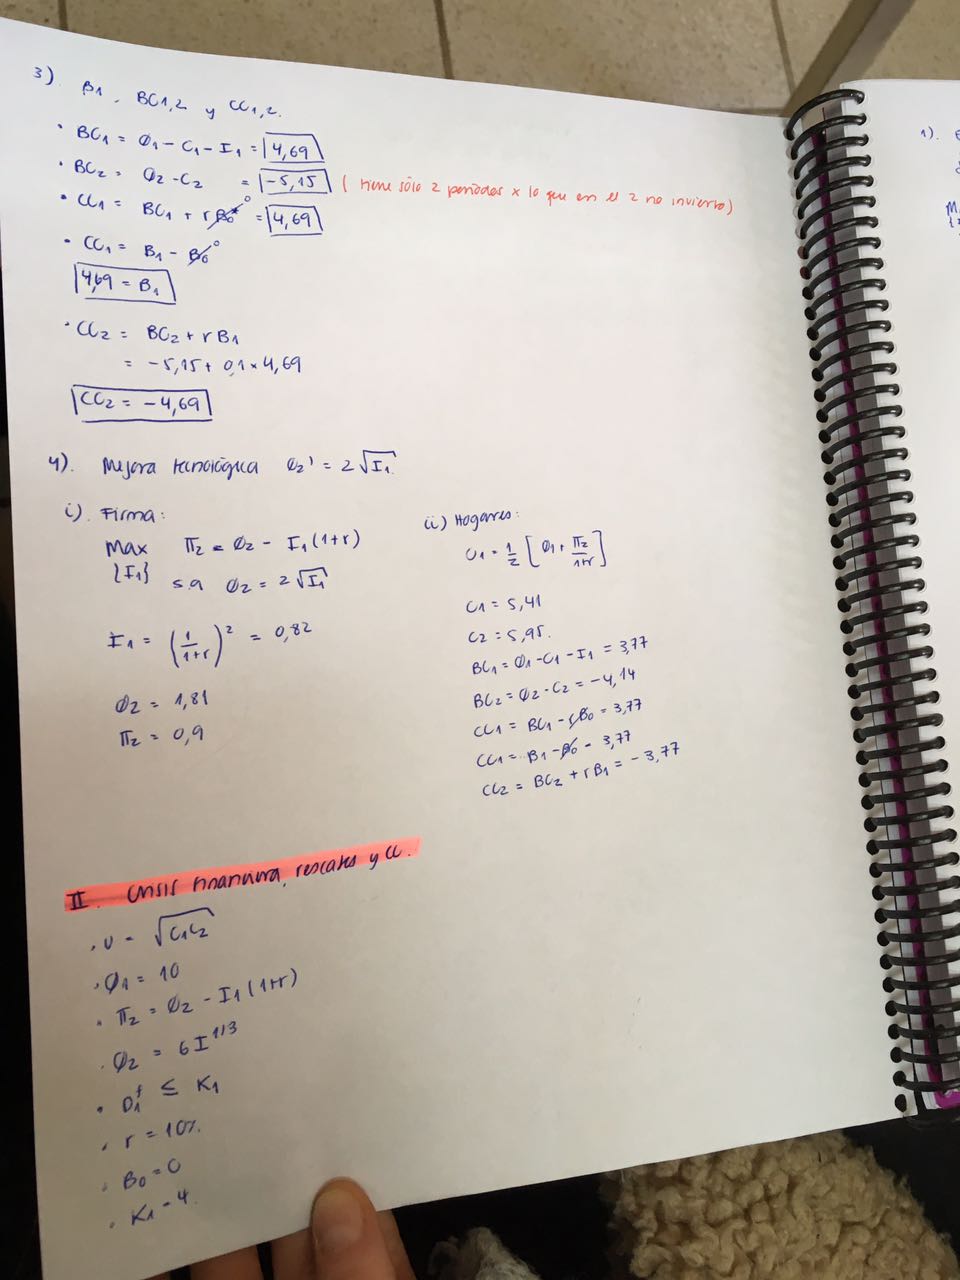 3) B1, BC1,2 y CC1,2.
• BC1 = Q1 - C1 - I1 = 4,69
• BC2 = Q2 - C2 = -5,15 ( tiene sólo 2 periodos x lo que en el 2 no invierto)
• CC1 = BC1 + r B0* 0 = 4,69
• CC1 = B1 - B0 0
4,69 = B1
• CC2 = BC2 + r B1
= -5,15 + 0,1 × 4,69
CC2 = -4,69
4). Mejora tecnológica Q2' = 2√I1.
i). Firma:
Max π2 = Q2 - I1 (1+r)
{I1} s.a Q2 = 2√I1
I1 = (1/1+r)² = 0,82
Q2 = 1,81
π2 = 0,9
ii) Hogares:
C1 = 1/2 [Q1 + π2/1+r]
C1 = 5,41
C2 = 5,95.
BC1 = Q1 - C1 - I1 = 3,77
BC2 = Q2 - C2 = -4,14
CC1 = BC1 - rB0 = 3,77
CC1 = B1 - B0 = 3,77
CC2 = BC2 + r B1 = -3,77
II. Crisis financiera, rescates y CC.
• U = √C1C2
• Q1 = 10
• π2 = Q2 - I1 (1+r)
• Q2 = 6 I^1/3
• D1^f ≤ K1
• r = 10%.
• B0 = 0
• K1 = 4.
1).